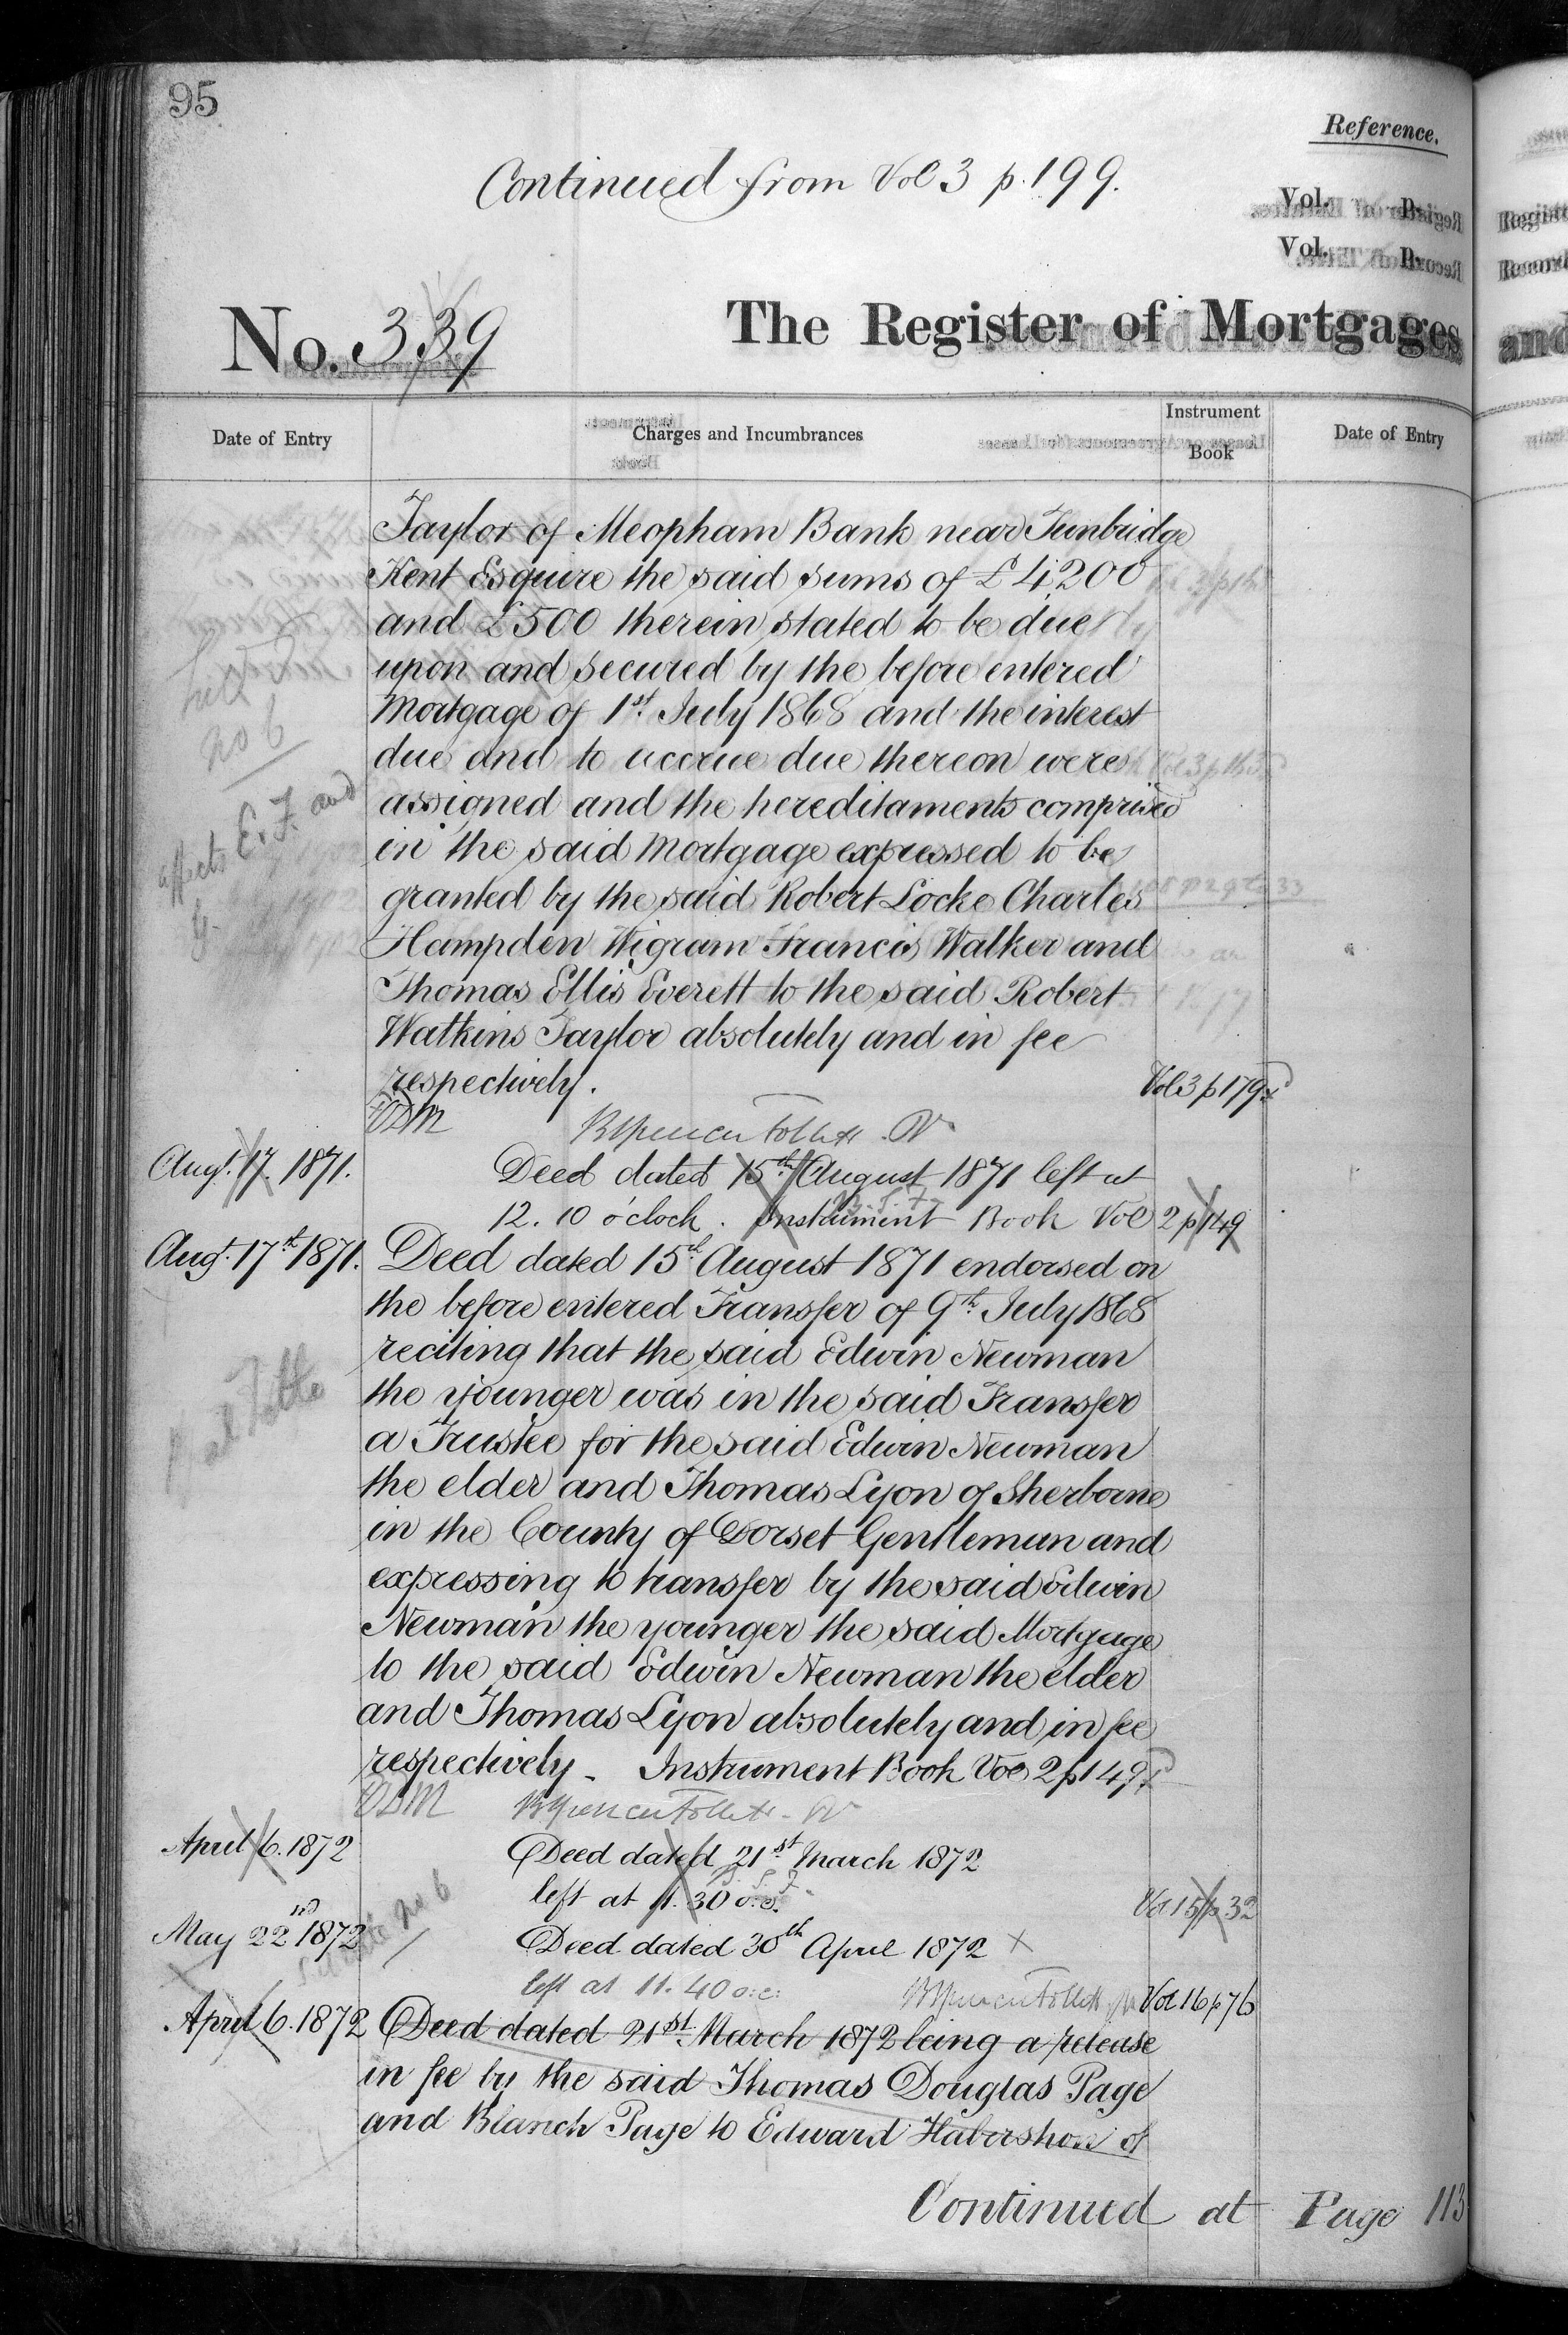 95
Reference.
Continued from Vol 3 p. 199.
Vol. p.
Vol. p.
No. 339
The Register of Mortgages
Date of Entry
Charges and Incumbrances
Instrument Book
Date of Entry
Taylor of Meopham Bank near Tunbridge
Kent Esquire the said sums of £4,200
and £500 therein stated to be due
upon and secured by the before entered
Mortgage of 1st. July 1868 and the interest
due and to accrue due thereon were
assigned and the hereditaments comprised
in the said Mortgage expressed to be
granted by the said Robert Locke Charles
Hampden Wigram Francis Walker and
Thomas Ellis Everett to the said Robert
Watkins Taylor absolutely and in fee
respectively. Vol 3 p 179
no 6
affects E. F. and
G.
Augt. 17. 1871. Deed dated 15th August 1871 left at
12.10 o'clock. Instrument Book Vol 2 p 149
Augt. 17th 1871. Deed dated 15th August 1871 endorsed on
the before entered Transfer of 9th July 1868
reciting that the said Edwin Newman
the younger was in the said Transfer
a Trustee for the said Edwin Newman
the elder and Thomas Lyon of Sherborne
in the County of Dorset Gentleman and
expressing to transfer by the said Edwin
Newman the younger the said Mortgage
to the said Edwin Newman the elder
and Thomas Lyon absolutely and in fee
respectively - Instrument Book Vol 2 p 149
April 6. 1872 Deed dated 21st March 1872
left at 11.30 o.c. Vol 15 p 32
May 22nd 1872 Deed dated 30th April 1872
left at 11.40 o.c. Vol 16 p 76
April 6. 1872 Deed dated 21st March 1872 being a release
in fee by the said Thomas Douglas Page
and Blanch Page to Edward Habershon of
Continued at Page 113